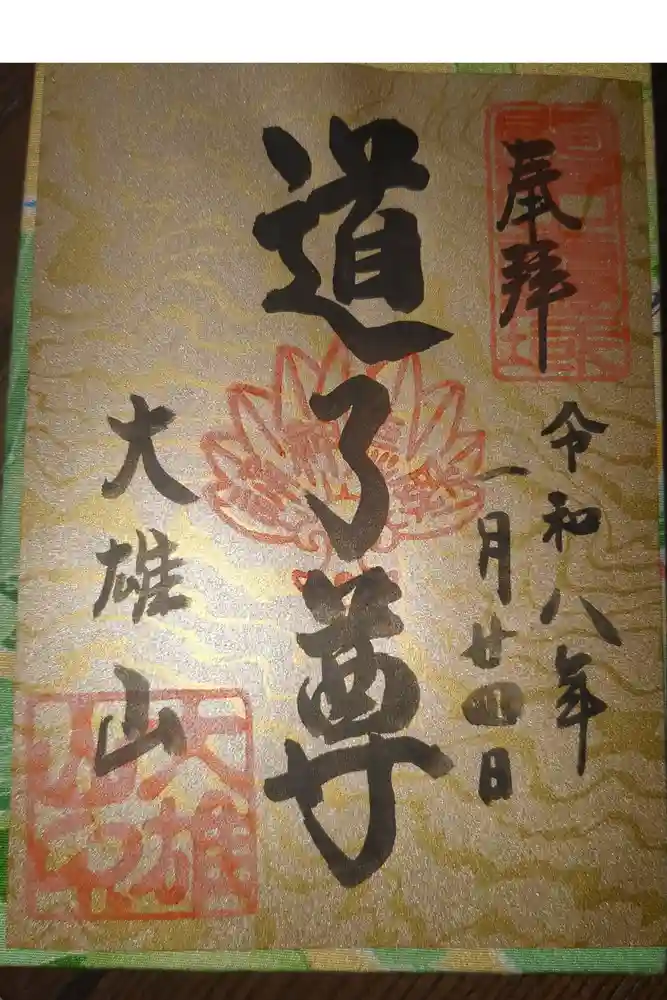 奉拝
令和八年
一月廿四日
道了尊
大雄山
大雄
山印